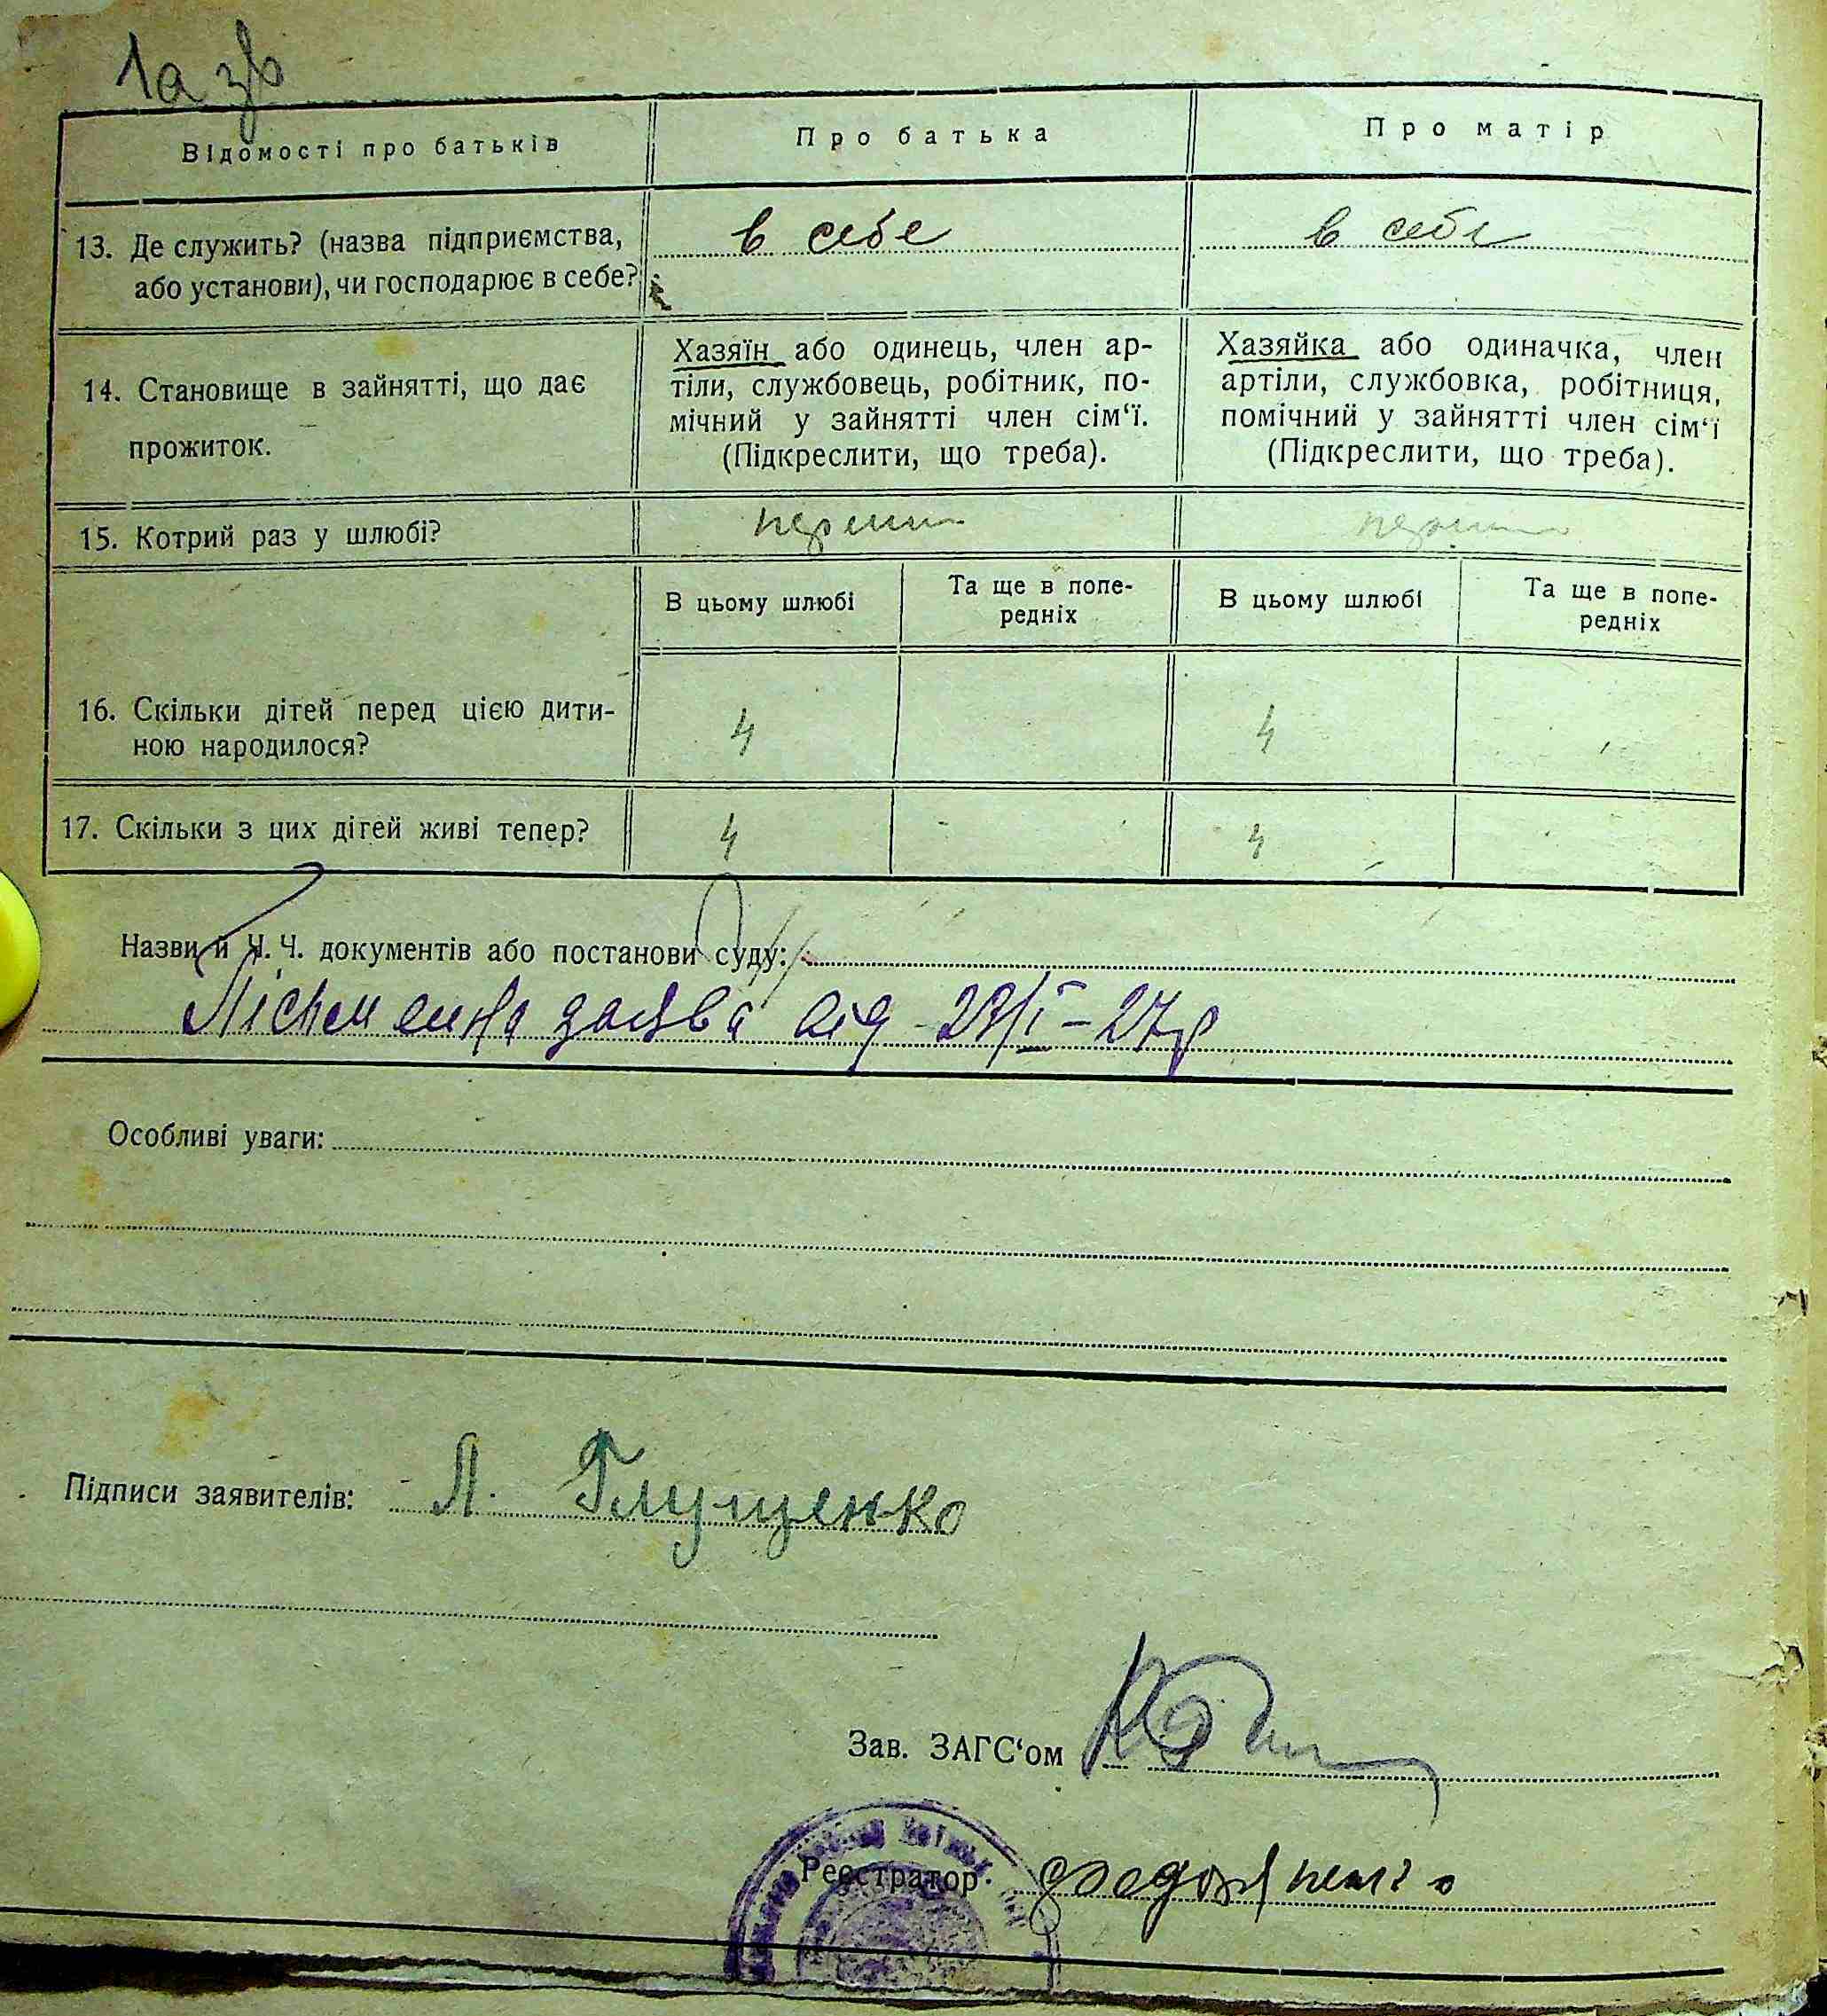 1а зв
Відомості про батьків
Про батька
Про матір
13. Де служить? (назва підприємства,
або установи), чи господарює в себе?
в себе
в себе
14. Становище в зайнятті, що дає
прожиток.
Хазяїн або одинець, член ар-
тіли, службовець, робітник, по-
мічний у зайнятті член сім‘ї.
(Підкреслити, що треба).
Хазяйка або одиначка, член
артіли, службовка, робітниця,
помічний у зайнятті член сім‘ї
(Підкреслити, що треба).
15. Котрий раз у шлюбі?
В цьому шлюбі
Та ще в попе-
редніх
В цьому шлюбі
Та ще в попе-
редніх
16. Скільки дітей перед цією дити-
ною народилося?
4
4
17. Скільки з цих дітей живі тепер?
4
4
Назви й Ч. Ч. документів або постанови суду:
заява від 29/I-27р
Особливі уваги:
Підписи заявителів: Л. Глущенко
Зав. ЗАГС‘ом
Реєстратор